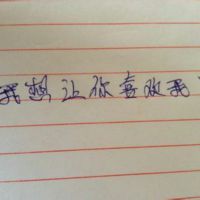 我想让你喜欢我